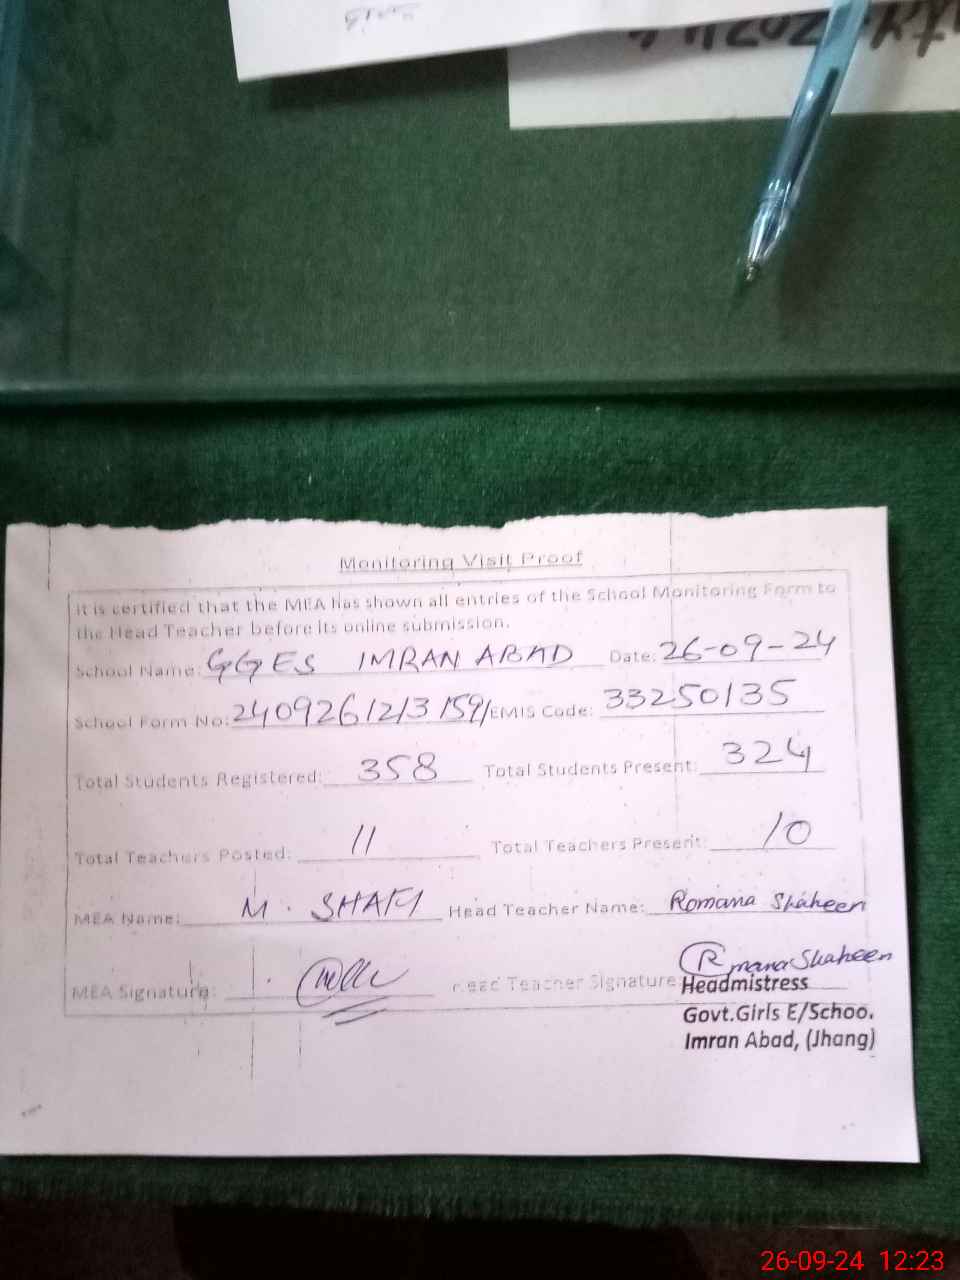 Monitoring Visit Proof
It is certified that the MEA has shown all entries of the School Monitoring Form to
the Head Teacher before its online submission.
School Name: GGES IMRAN ABAD Date: 26-09-24
School Form No: 2409261213159/EMIS Code: 33250135
Total Students Registered: 358 Total Students Present: 324
Total Teachers Posted: 11 Total Teachers Present: 10
MEA Name: M. SHAFI Head Teacher Name: Romana Shaheen
MEA Signature: Head Teacher Signature Romana Shaheen
Headmistress
Govt.Girls E/Schoo.
Imran Abad, (Jhang)
26-09-24 12:23